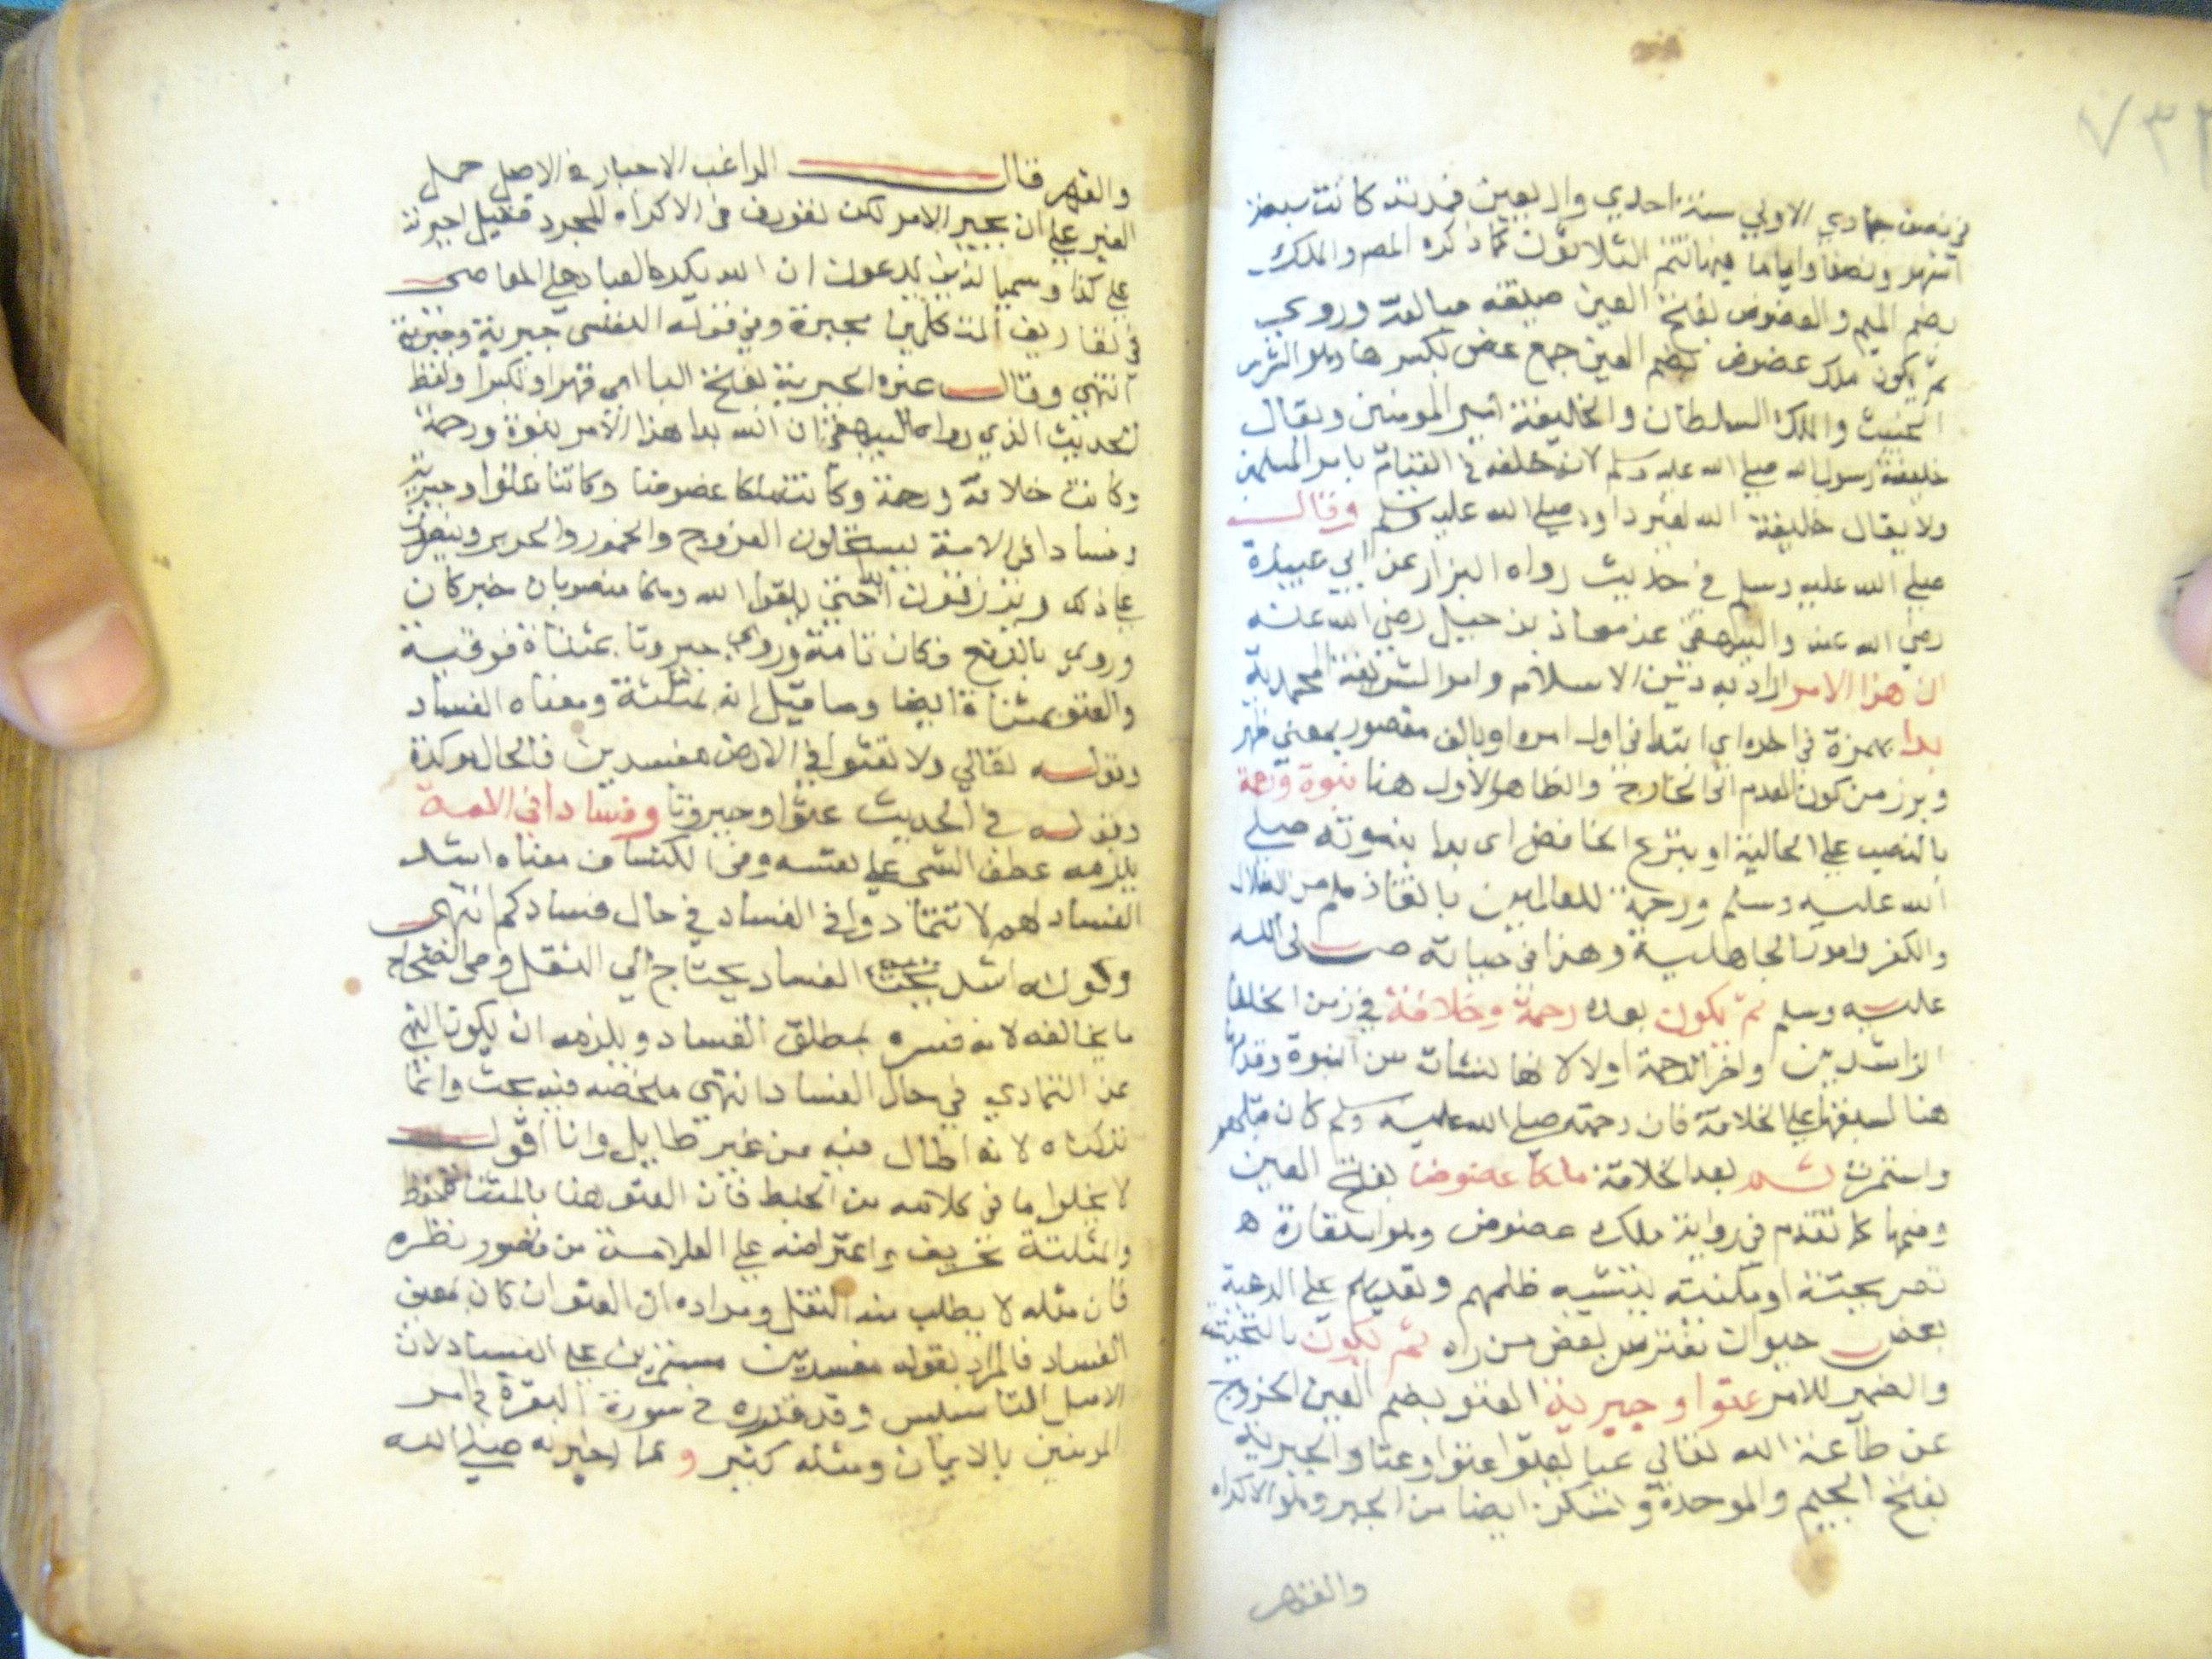 ٧٣٢
في نصف جمادي الاولي سنة احدي واربعين فمدته كانت سبعة
اشهر ونصفا واياما فيها تتم الثلاثون كما ذكره المصر والملك
بضم الميم والعضوض بفتح العين صيغة مبالغة وروي
ثم يكون ملك عضوض بضم العين جمع عض بكسرها وهو الشرس
الخبيث والملك السلطان والخليفة امير المومنين ويقال
خليفة رسول الله صلي الله عليه وسلم لانه خلفه في القيام بامر المسلمين
ولا يقال خليفة الله لغير داود صلي الله عليه وسلم وقال
صلي الله عليه وسلم في حديث رواه البزار عن ابي عبيدة
رضي الله عنه والبيهقي عن معاذ بن جبل رضي الله عنه
ان هذا الامر اراد به دين الاسلام وامر الشريعة المحمدية
بدا بهمزة في اخره اي ابتدا في اول امره او بالف مقصور بمعني ظهر
وبرز من كون العدم الي الخارج والظاهر الاول هنا نبوة ورحمة
بالنصب علي الحالية او بنزع الخافض اي بدا بنبوته صلي
الله عليه وسلم ورحمة للعالمين بانقاذهم من الضلال
والكفر وامور الجاهلية وهذا في حياته صلي الله
عليه وسلم ثم يكون بعده رحمة وخلافة في زمن الخلفا
الراشدين واخر الرحمة اولا لانها نشات من النبوة وقدمها
هنا لسبقها علي الخلافة فان رحمته صلي الله عليه وسلم كان قبلهم
واستمرت ثم بعد الخلافة ملكا عضوضا بفتح العين
وضمها كما تقدم في رواية ملك عضوض وهو استعارة
تصريحية او مكنية بتشبيه ظلمهم وتعديهم علي الرعية
بعض حيوان مفترس يعض من راه ثم يكون بالتحتية
والضمير للامر عتوا وجبرية العتو بضم العين الخروج
عن طاعة الله تعالي عتا يعتو عتوا وعتا والجبرية
بفتح الجيم والموحدة وتسكن ايضا من الجبر وهو الاكراه
والقهر
والقهر قال الراغب الاجبار في الاصل حمل
الغير علي ان يجبر الامر لكن تعورف في الاكراه المجرد فقيل اجبرته
علي كذا وسمي الذين يدعون ان الله يكره العباد علي المعاصي
في تعاريف المتكلمين مجبرة وفي قول المتقدمين جبرية وجبرية
انتهي وقال غيره الجبرية بفتح البا اي قهرا وتكبرا ولفظ
الحديث الذي رواه البيهقي ان الله بدا هذا الامر نبوة ورحمة
وكانت خلافة ورحمة وكانت ملكا عضوضا وكانتا عتوا وجبرية
وفسادا في الامة يستحلون الفروج والخمور والحرير وينصرون
علي ذلك ويرزقون حتي يلقوا الله وهما منصوبان خبر كان
وروي بالرفع فكان تامة وروي جبروتا بمثناة فوقية
والعتو بمثناة ايضا وما قيل انه بمثلثة ومعناه الفساد
وقوله تعالي ولا تعثوا في الارض مفسدين فالحال موكدة
وقوله في الحديث عثوا وجبروتا وفسادا في الامة
يلزمه عطف الشي علي نفسه وفي الكشاف معناه اشد
الفساد لهم لا تتمادوا في الفساد في حال فسادكم انتهي
وكونه اشد الفساد يحتاج الي النقل وفي الصحاح
ما يخالفه لانه فسره بمطلق الفساد ويلزمه ان يكون النهي
عن التمادي في حال الفساد انتهي ملخصه فيه بحث وانما
تركناه لانه اطال فيه من غير طايل وانا اقول
لا يخلوا ما في كلامه من الخبط فان العتو هنا بالمثناة فقط
والمثلثة تحريف واعتراضه علي العلامة من قصور نظره
فان مثله لا يطلب منه النقل ومراده ان العثو ان كان بمعني
الفساد فالمراد بقوله مفسدين مستمرين علي الفساد لان
الاصل التاسيس وقد قرره في سورة البقرة في امر
المومنين بالايمان ومثله كثير و مما اخبر به صلي الله